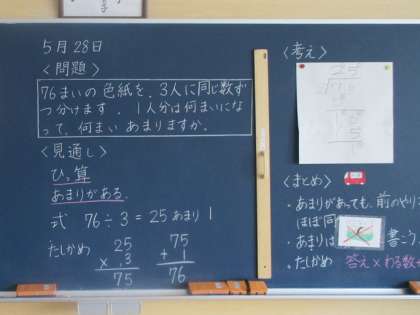 5月28日
〈問題〉
76まいの色紙を、3人に同じ数ず
つ分けます。1人分は何まいにな
って、何まいあまりますか。
〈見通し〉
ひっ算
あまりがある。
式 76÷3=25あまり1
たしかめ
25
×3
75
75
+1
76
〈考え〉
25
〈まとめ〉
・あまりがあっても、前のやり
ほぼ同
・あまりは 書こう
・たしかめ 答え×わる数+